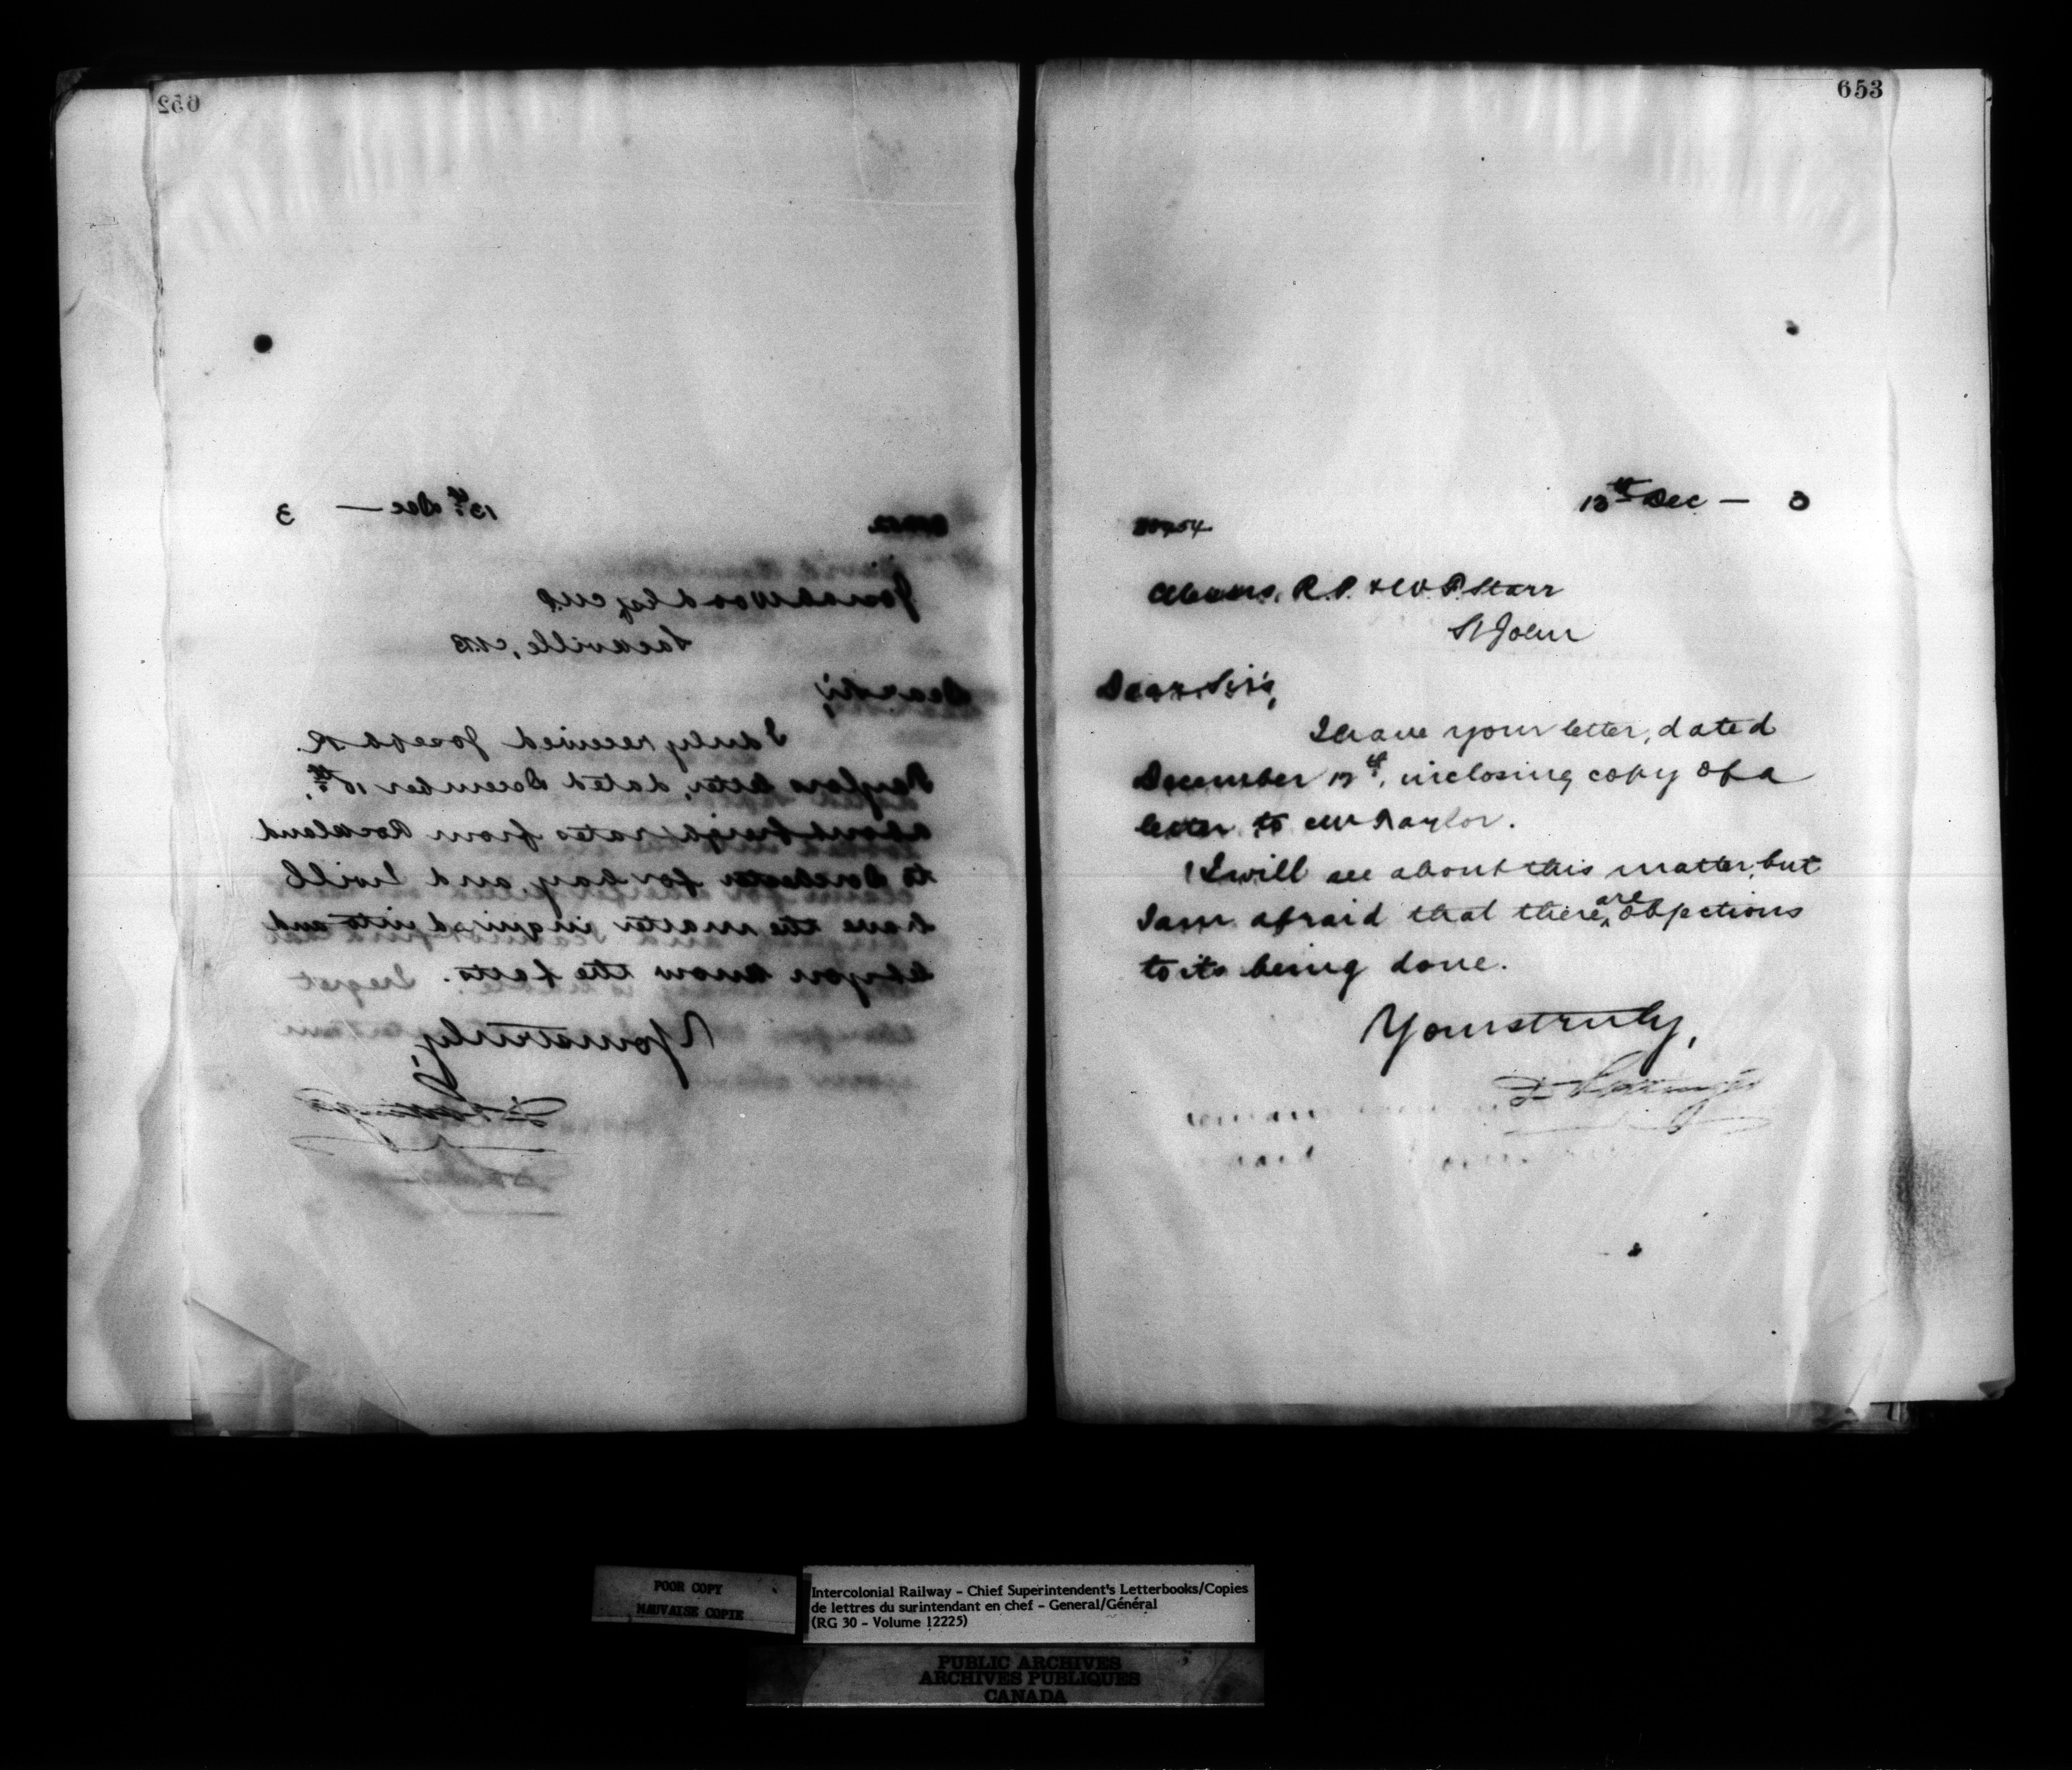 652
13th Dec — 3
Josiah Wood Esq M.P.
Sackville, N.B
Dear Sir,
I duly received Joseph R.
Taylors letter, dated December 10th,
about freight rates from Rockland
to Dorchester for hay, and I will
have the matter inquired into and
let you know the facts.
Yours truly,
D Pottinger
653
13th Dec — 3
Messrs. R.P. & W.F. Starr
St John
Dear Sirs,
I have your letter, dated
December 12th, inclosing copy of a
letter to Mr Taylor.
I will see about this matter, but
I am afraid that there are objections
to its being done.
Yours truly,
D Pottinger
POOR COPY
MAUVAISE COPIE
Intercolonial Railway - Chief Superintendent's Letterbooks/Copies
de lettres du surintendant en chef - General/Général
(RG 30 - Volume 12225)
PUBLIC ARCHIVES
ARCHIVES PUBLIQUES
CANADA